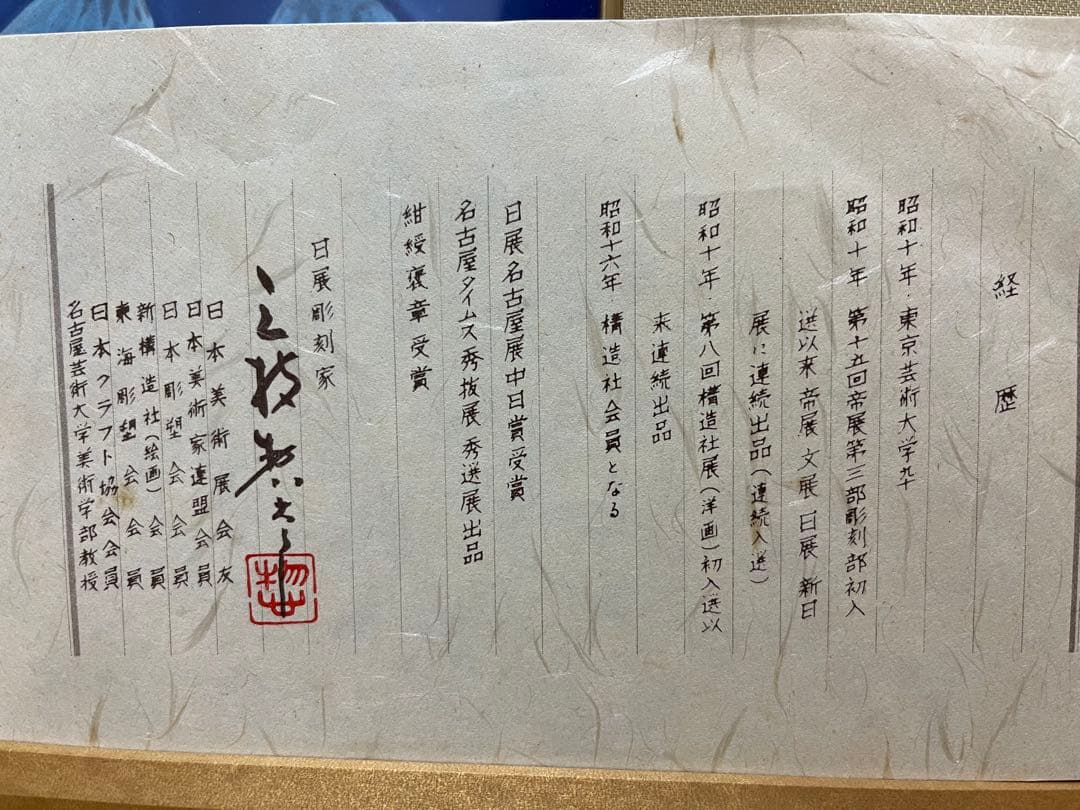 経歴
昭和十年・東京芸術大学卆
昭和十年 第十五回帝展第三部彫刻部初入
選以来帝展 文展 日展 新日
展に連続出品(連続入選)
昭和十年・第八回構造社展(洋画)初入選以
来連続出品
昭和十六年・構造社会員となる
日展名古屋展中日賞受賞
名古屋タイムス秀抜展秀選展出品
紺綬褒章受賞
日展彫刻家
日本美術展会友
日本美術家連盟会員
日本彫塑会会員
新構造社(絵画)会員
東海彫塑会会員
日本クラフト協会会員
名古屋芸術大学美術学部教授